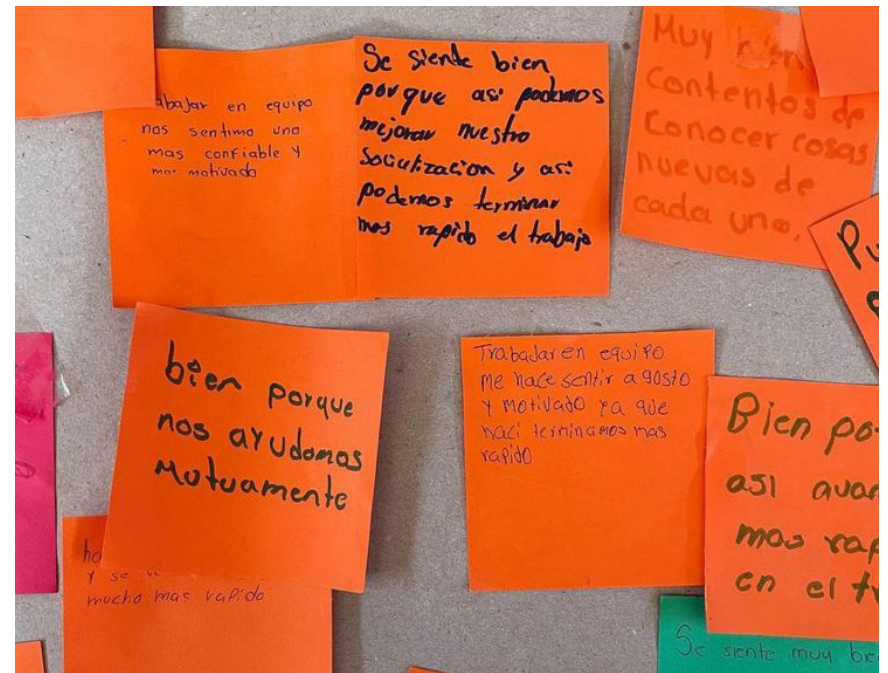 abajar en equipo
nos sentimo uno
mas confiable y
mas motivado
Se siente bien
porque asi podemos
mejorar nuestro
Socialización y asi
podemos terminar
mas rapido el trabajo
Muy bien
Contentos de
Conocer cosas
nuevas de
cada uno.
Pu
bien porque
nos ayudamos
Mutuamente
Trabadar en equipo
me hace sentir agosto
y motivado ya que
haci terminamos mas
rapido
Bien po
asi avan
mas rap
en el tr
ho
y se
mucho mas rapido
Se siente muy bie